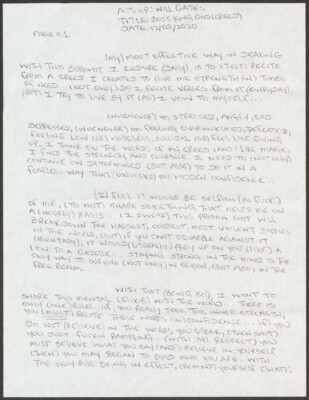 AUTHOR: WILL GATES
TITLE: BOSS KING GOD (CREED)
DATE: 12/03/2020
PAGE #1
(MY) MOST EFFECTIVE WAY IN DEALING
WITH THIS BULLSHIT I ENDURE (DAILY), IS TO (JUST) RECITE
FROM A CREED I CREATED TO GIVE ME STRENGTH (IN) TIMES
OF NEED. (NOT ONLY) DO I RECITE VERSES FROM IT (EVERYDAY),
(BUT) I TRY TO LIVE BY IT (AS) I VOW TO MYSELF...
(WHENEVER) I'M STRESSED, ANGRY, SAD
DEPRESSED, (WHENEVER) I'M FEELING OVERWHELMED, DEFEATED,
FEELING LOW (OR) HOPELESS, SUICIDAL (OR) FEEL LIKE GIVING
UP. I THINK ON THE WORDS OF MY CREED (AND) LIKE MAGIC,
I FIND THE STRENGTH AND COURAGE I NEED TO (NOT ONLY)
CONTINUE ON DETERMINED (BUT ALSO) TO DO IT IN A
FEARLESS WAY THAT (UNLOCKS) MY HIDDEN CONFIDENCE...
(I) FEEL IT WOULD BE SELFISH (AS FUCK)
OF ME, (TO NOT) SHARE SOMETHING THAT HELPS ME ON
A (HOURLY) BASIS. I SWEAR THIS PRISON SHIT WILL
BREAK DOWN THE HARDEST, COLDEST, MOST VIOLENT SAVAGE
IN THE WORLD, (CUT) IF YOU CAN'T STRUGGLE AGAINST IT
(MENTALLY), IT WOULD (LITERALLY) PREY UP ON YOU (LIKE) A
LION TO A GAZELLE... STAYING STRONG IN THE MIND IS THE
ONLY WAY TO SURVIVE (NOT ONLY) IN PRISON, (BUT ALSO) IN THE
FREE REALMS.
WITH THAT (BEING SO), I WANT TO
SHARE THIS MENTAL (ELIXIR) WITH THE WORLD. THERE IS
ONLY (ONE) RULE. IF YOU REALLY SEEK THIS INNER STRENGTH,
YOU (MUST) RECITE THESE WORDS (IN) CONFIDENCE... IF YOU
DO NOT (BELIEVE) IN THE WORDS YOU SPEAK, (THEN SHIT)
YOU JUST FUCKIN RAMBLING. (WITH ALL RESPECT) YOU
MUST BELIEVE WHAT YOU SAY (AND) BELIEVE IN YOURSELF
(THEN) YOU MAY BEGAN TO BUILD WHO YOU ARE. WITH
THE ONLY RULE BEING IN EFFECT, (REMIND) YOURSELF (THAT):